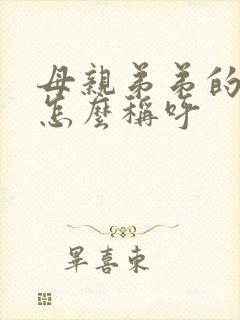 母親弟弟的
怎麼稱呼
畢喜東